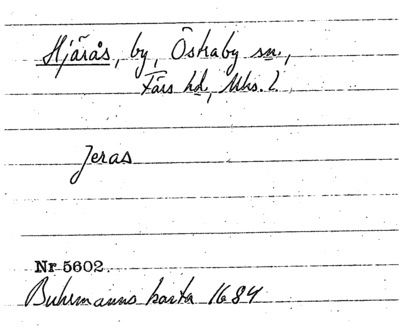 Hjärås, by, Östraby sn.,
Färs hd, Mhs. l.
Jeras
Nr 5602.
Buhrmanns karta 1684